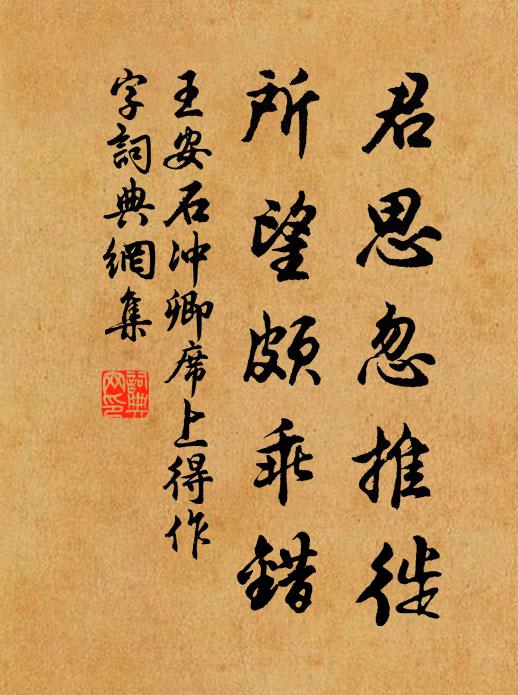 君思忽推徙
所望頗乖錯
王安石冲卿席上得作
字詞典網集
詞典
网印